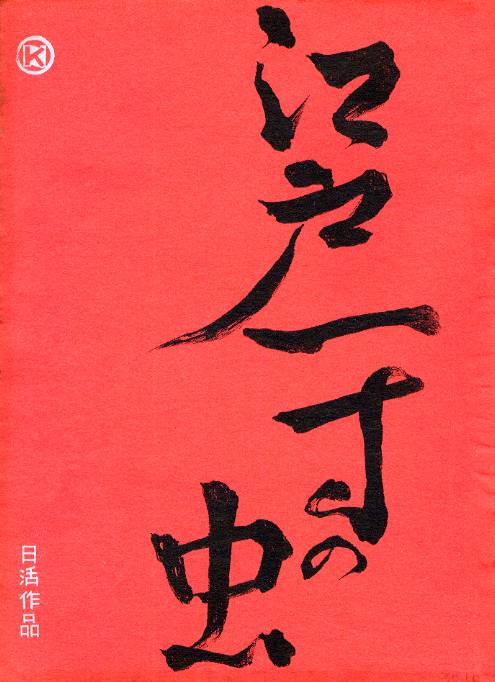 江戸一寸の虫
K
日活作品